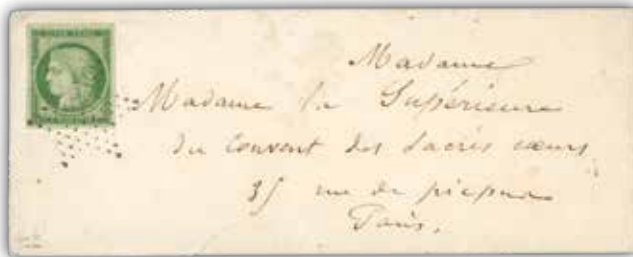 Madame
Madame la Supérieure
du Couvent des Sacrés cœurs
35 rue de picpus
Paris.